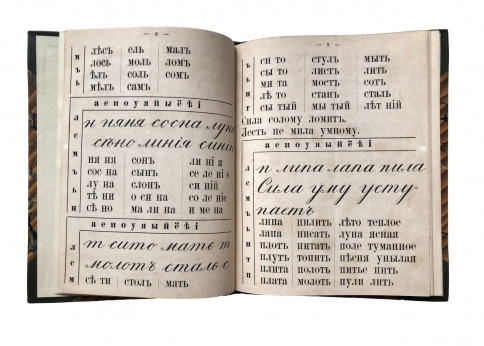 — 8 —
лѣсъ ель малъ
лось моль ломъ
ѣлъ соль сомъ
мѣлъ самъ
м ъ ь
а е и о у я ы й ѣ ё і
н няня сосна луна
сѣно линія синій
ня ня сонъ ли ні я
сос на сынъ се ле ні е
лу на слонъ си ній
тѣ ни о си на со ле ніе
сѣ но ма ли на и ме на
л с м ъ ь н
а е и о у я ы й ѣ ё і
т сито мать т
молотъ сталь с
сѣ ти столъ мать
л с м
— 9 —
си то стулъ мыть
сы то листъ лить
мя та мостъ сити
лѣ то станъ сталь
сы тый мы тый лѣт ній
Сила солому ломитъ.
Лесть не мила умному.
а е и о у я ы й ѣ ё і
п липа лапа пила
Сила уму усту-
паетъ
липа пилить лѣто теплое
лапа писать луна ясная
плотъ питать поле туманное
плутъ топить пѣсня унылая
плита полоть питье пить
плата молоть пули лить
л с м ъ ь н т п